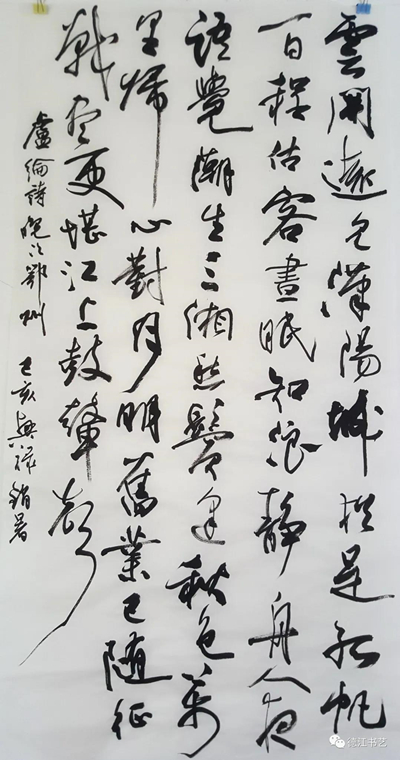 雲開遠見漢陽城猶是孤帆
一日程估客晝眠知浪靜舟人夜
語覺潮生三湘愁鬢逢秋色萬
里歸心對月明舊業已隨征
戰盡更堪江上鼓鼙聲
盧綸詩晚次鄂州 己亥興祿銷暑
德江书艺